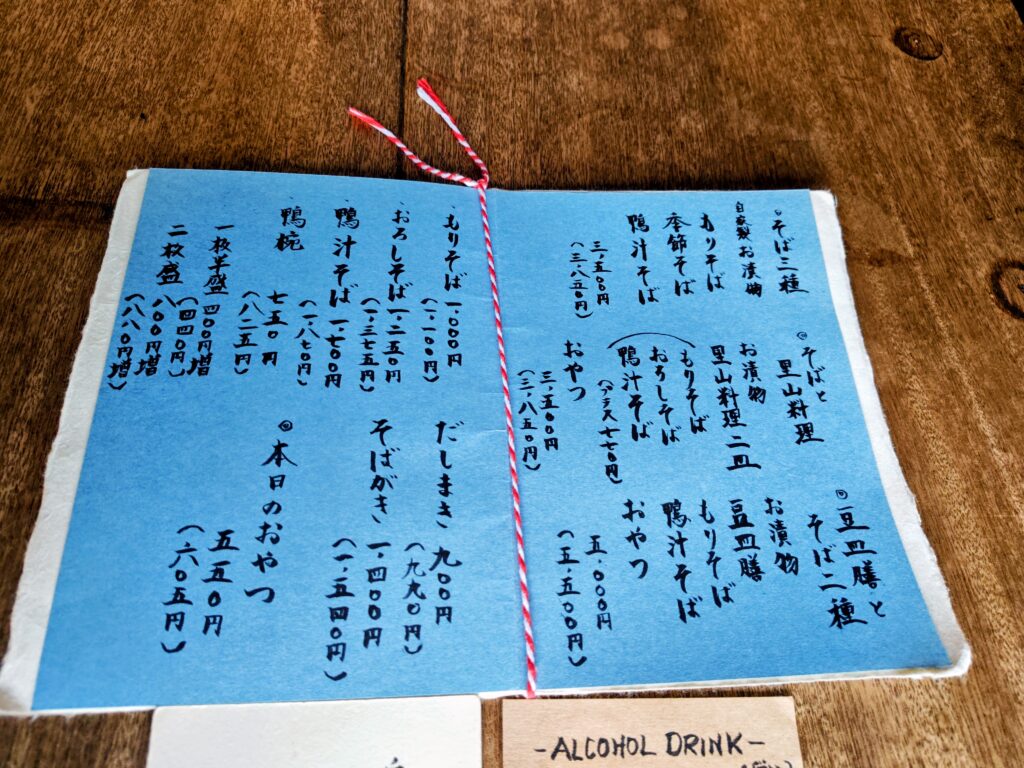 ◎そば三種
自家製お漬物
もりそば
季節そば
鴨汁そば
三.五〇〇円
(三.八五〇円)
◎そばと
里山料理
お漬物
里山料理二皿
もりそば
おろしそば
鴨汁そば
(プラス七七〇円)
おやつ
三.五〇〇円
(三.八五〇円)
◎豆皿膳と
そば二種
お漬物
豆皿膳
もりそば
鴨汁そば
おやつ
五.〇〇〇円
(五.五〇〇円)
・もりそば 一.〇〇〇円
(一.一〇〇円)
・おろしそば 一.二五〇円
(一.三七五円)
・鴨汁そば 一.七〇〇円
(一.八七〇円)
鴨椀 七五〇円
(八二五円)
一枚半盛 四〇〇円増
(四四〇円)
二枚盛 八〇〇円増
(八八〇円増)
だしまき 九〇〇円
(九九〇円)
そばがき 一.四〇〇円
(一.五四〇円)
◎本日のおやつ
五五〇円
(六〇五円)
-ALCOHOL DRINK-